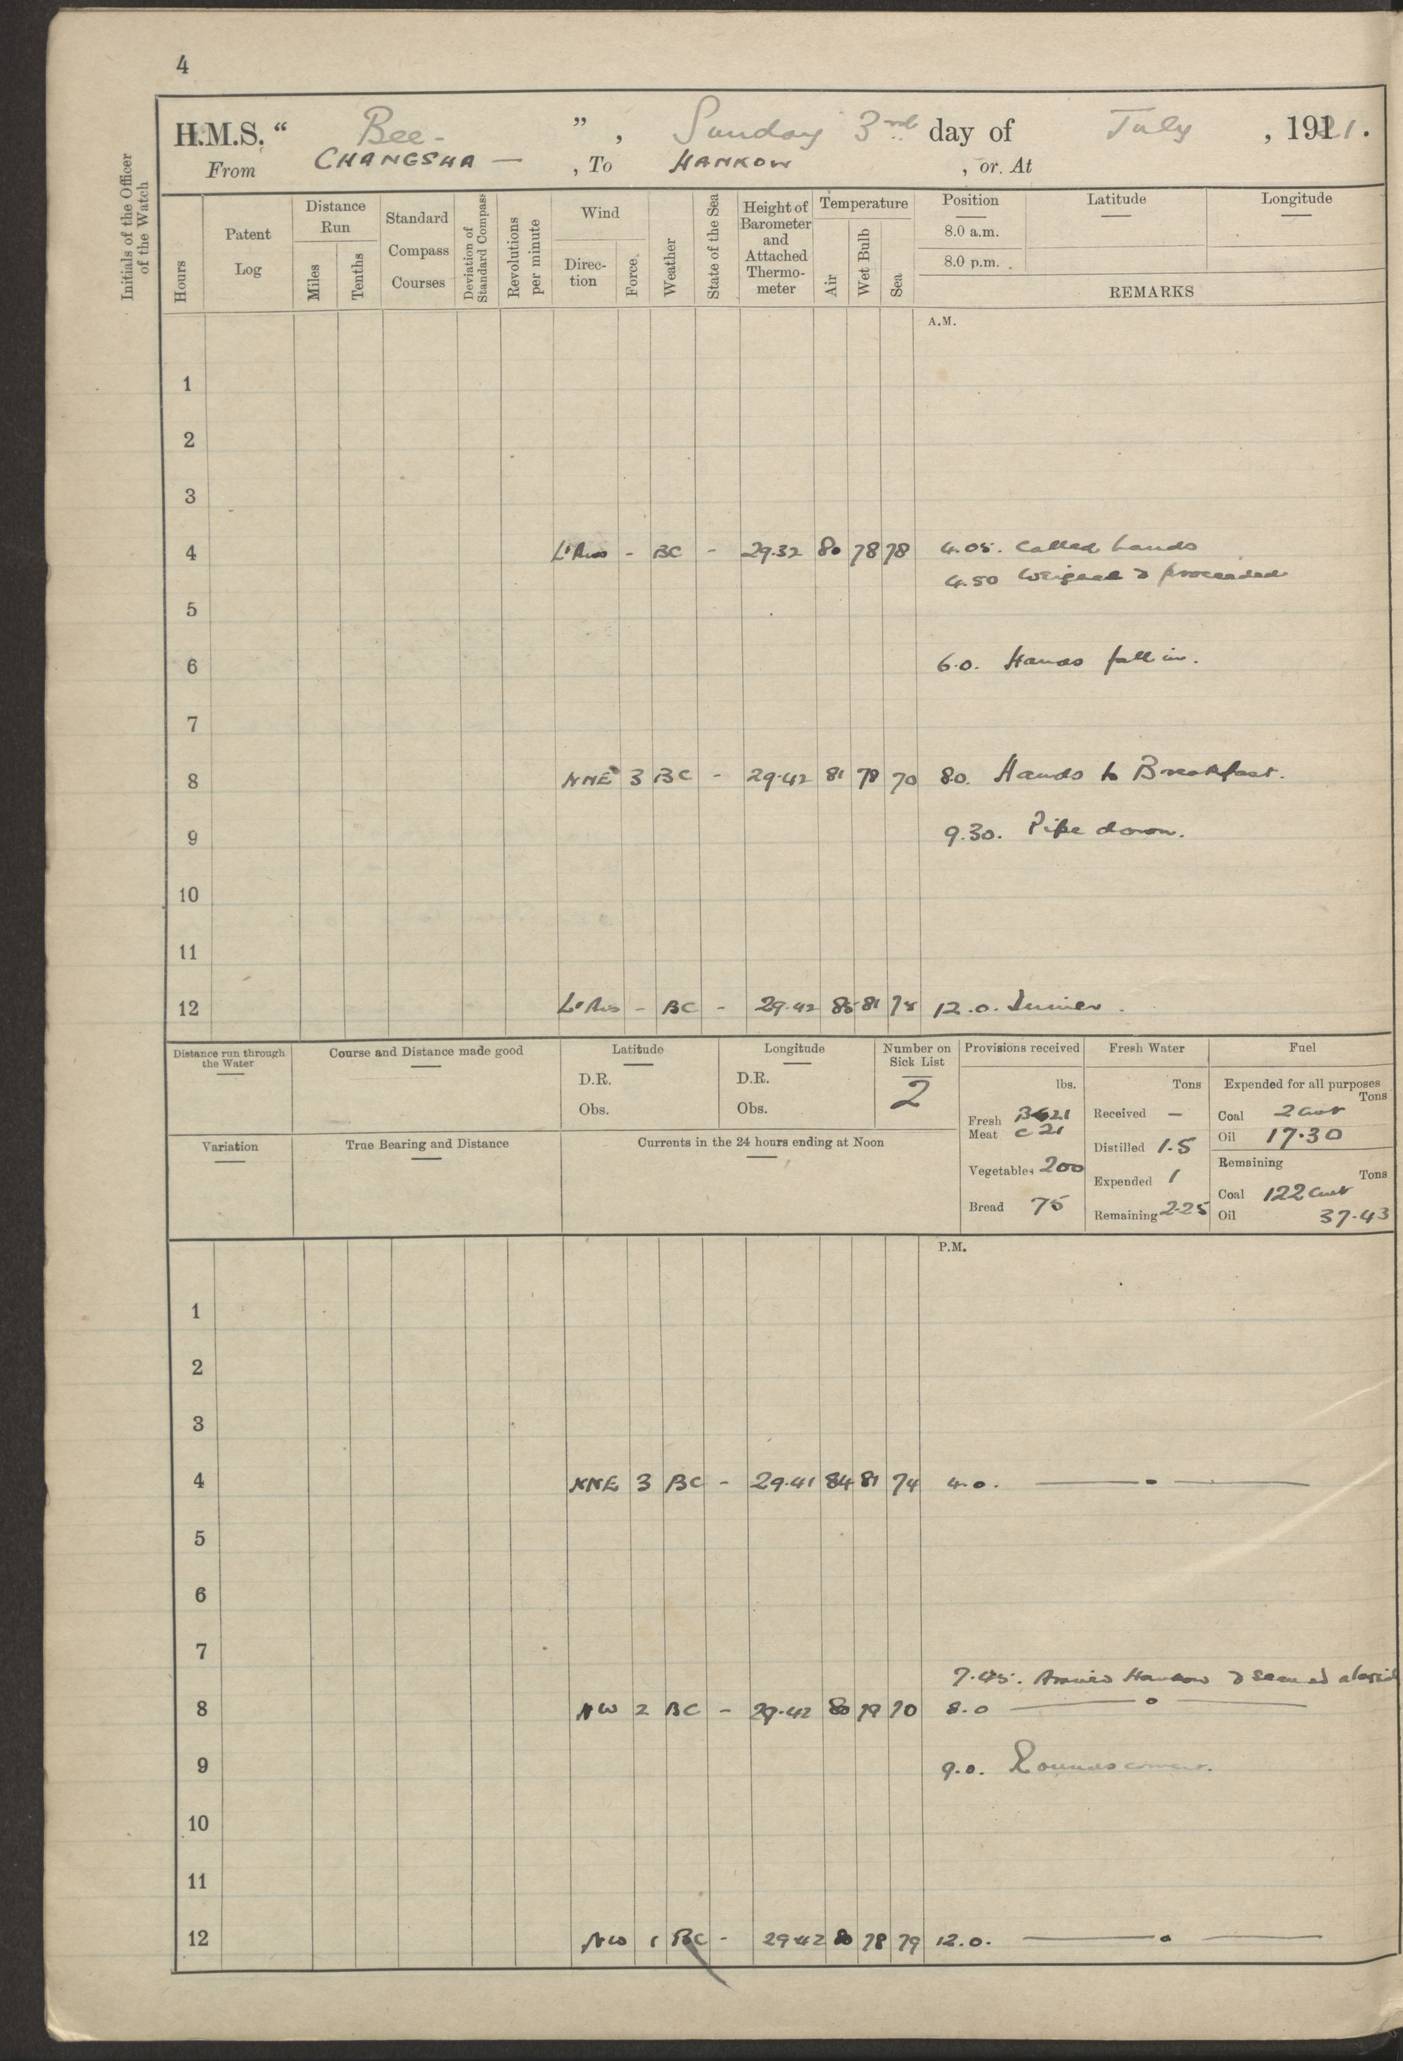 4
H.M.S. “ Bee - ” , Sunday 3rd day of July , 1921.
From CHANGSHA — , To HANKOW , or At
Initials of the Officer of the Watch
Hours
Patent Log
Distance Run
Miles
Tenths
Standard Compass Courses
Deviation of Standard Compass
Revolutions per minute
Wind
Direction
Force
Weather
State of the Sea
Height of Barometer and Attached Thermometer
Temperature
Air
Wet Bulb
Sea
Position
8.0 a.m.
8.0 p.m.
Latitude
Longitude
REMARKS
A.M.
1
2
3
4 - BC - 29.32 80 78 78 4.05. Called hands
4.50 Weighed & proceeded
5
6 6.0. Hands fall in.
7
8 NNE 3 BC - 29.42 81 78 70 80. Hands to Breakfast.
9 9.30. Pipe down.
10
11
12 - BC - 29.42 85 81 75 12.0. Dinner.
Distance run through the Water
Course and Distance made good
Latitude
D.R.
Obs.
Longitude
D.R.
Obs.
Number on Sick List
2
Provisions received
lbs.
Fresh Meat B 621
C 21
Vegetables 200
Bread 75
Fresh Water
Tons
Received —
Distilled 1.5
Expended 1
Remaining 2.25
Fuel
Expended for all purposes
Tons
Coal 2 cwt
Oil 17.30
Remaining
Tons
Coal 122 cwt
Oil 37.43
Variation
True Bearing and Distance
Currents in the 24 hours ending at Noon
P.M.
1
2
3
4 NNE 3 BC - 29.41 84 81 74 4.0.
5
6
7
7.45. Arrived Hankow & secured
8 NW 2 BC - 29.42 80 79 70 8.0
9 9.0. Rounds correct.
10
11
12 NW 1 BC - 29.42 80 78 79 12.0.